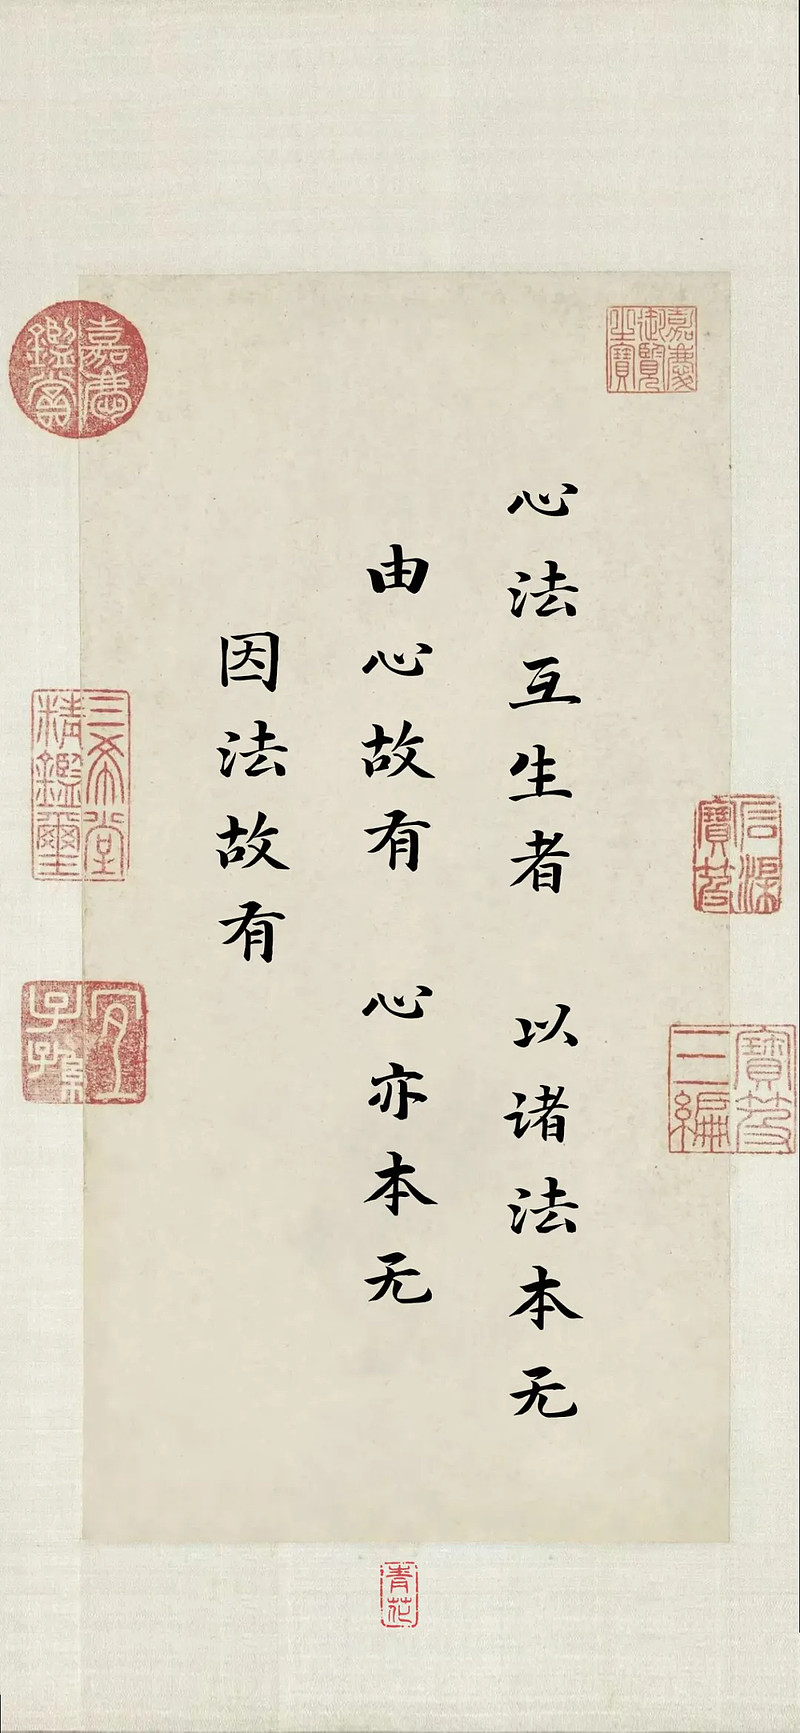 心法互生者 以诸法本无
由心故有 心亦本无
因法故有
嘉慶御覽之寶
嘉慶鑑賞
三希堂精鑑璽
宜子孫
寶笈三編
青花